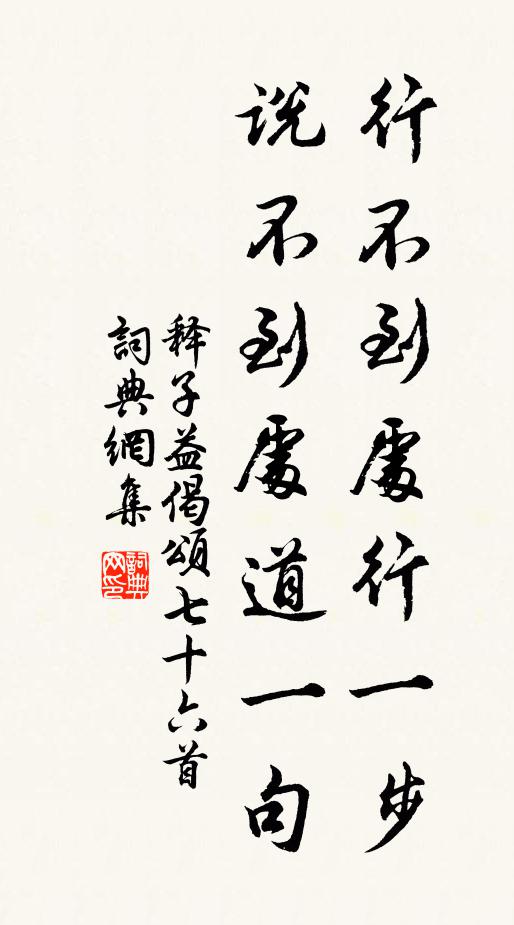 行不到處行一步
說不到處道一句
释子益偈頌七十六首
詞典網集
詞典網印